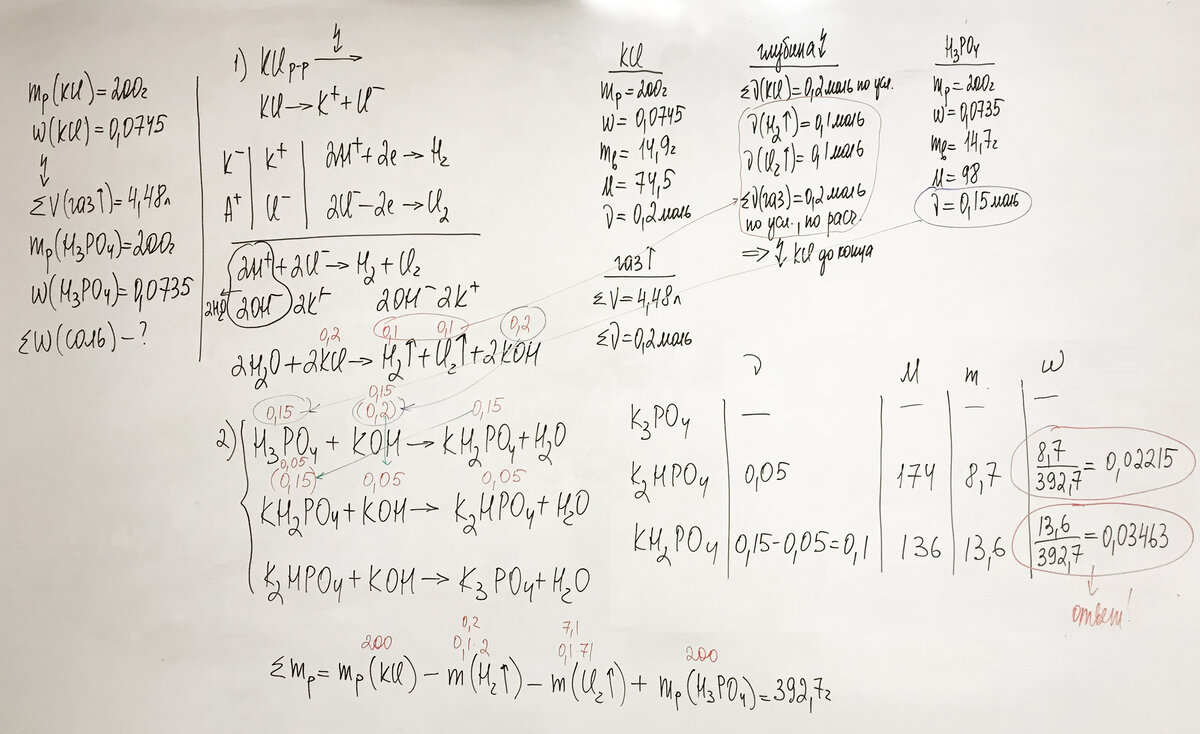 mр(KCl)=200г
w(KCl)=0,0745
↯
ΣV(газ↑)=4,48л
mр(H₃PO₄)=200г
w(H₃PO₄)=0,0735
Σw(соль)-?
1) KCl р-р ↯→
KCl→K⁺+Cl⁻
K⁻ | K⁺ | 2H⁺+2e→H₂
A⁺ | Cl⁻ | 2Cl⁻-2e→Cl₂
2H⁺+2Cl⁻→H₂+Cl₂
2H₂O 2OH⁻ 2K⁺ 2OH⁻ 2K⁺
0,2 0,1 0,1 0,2
2H₂O+2KCl→H₂↑+Cl₂↑+2KOH
0,15
0,15 (0,2) 0,15
2) H₃PO₄+KOH→KH₂PO₄+H₂O
0,05
(0,15) 0,05 0,05
KH₂PO₄+KOH→K₂HPO₄+H₂O
K₂HPO₄+KOH→K₃PO₄+H₂O
0,2 7,1
200 0,1·2 0,1·71 200
Σmр=mр(KCl)-m(H₂↑)-m(Cl₂↑)+mр(H₃PO₄)=392,7г
KCl
mр=200г
w=0,0745
mв=14,9г
M=74,5
ν=0,2моль
газ↑
ΣV=4,48л
Σν=0,2моль
глубина ↯
Σν(KCl)=0,2моль по усл.
ν(H₂↑)=0,1моль
ν(Cl₂↑)=0,1моль
Σν(газ)=0,2моль
по усл., по расч.
⇒ ↯ KCl до конца
H₃PO₄
mр=200г
w=0,0735
mв=14,7г
M=98
ν=0,15моль
ν M m. w
K₃PO₄ — — — —
K₂HPO₄ 0,05 174 8,7 8,7/392,7=0,02215
KH₂PO₄ 0,15-0,05=0,1 136 13,6 13,6/392,7=0,03463
ответ!